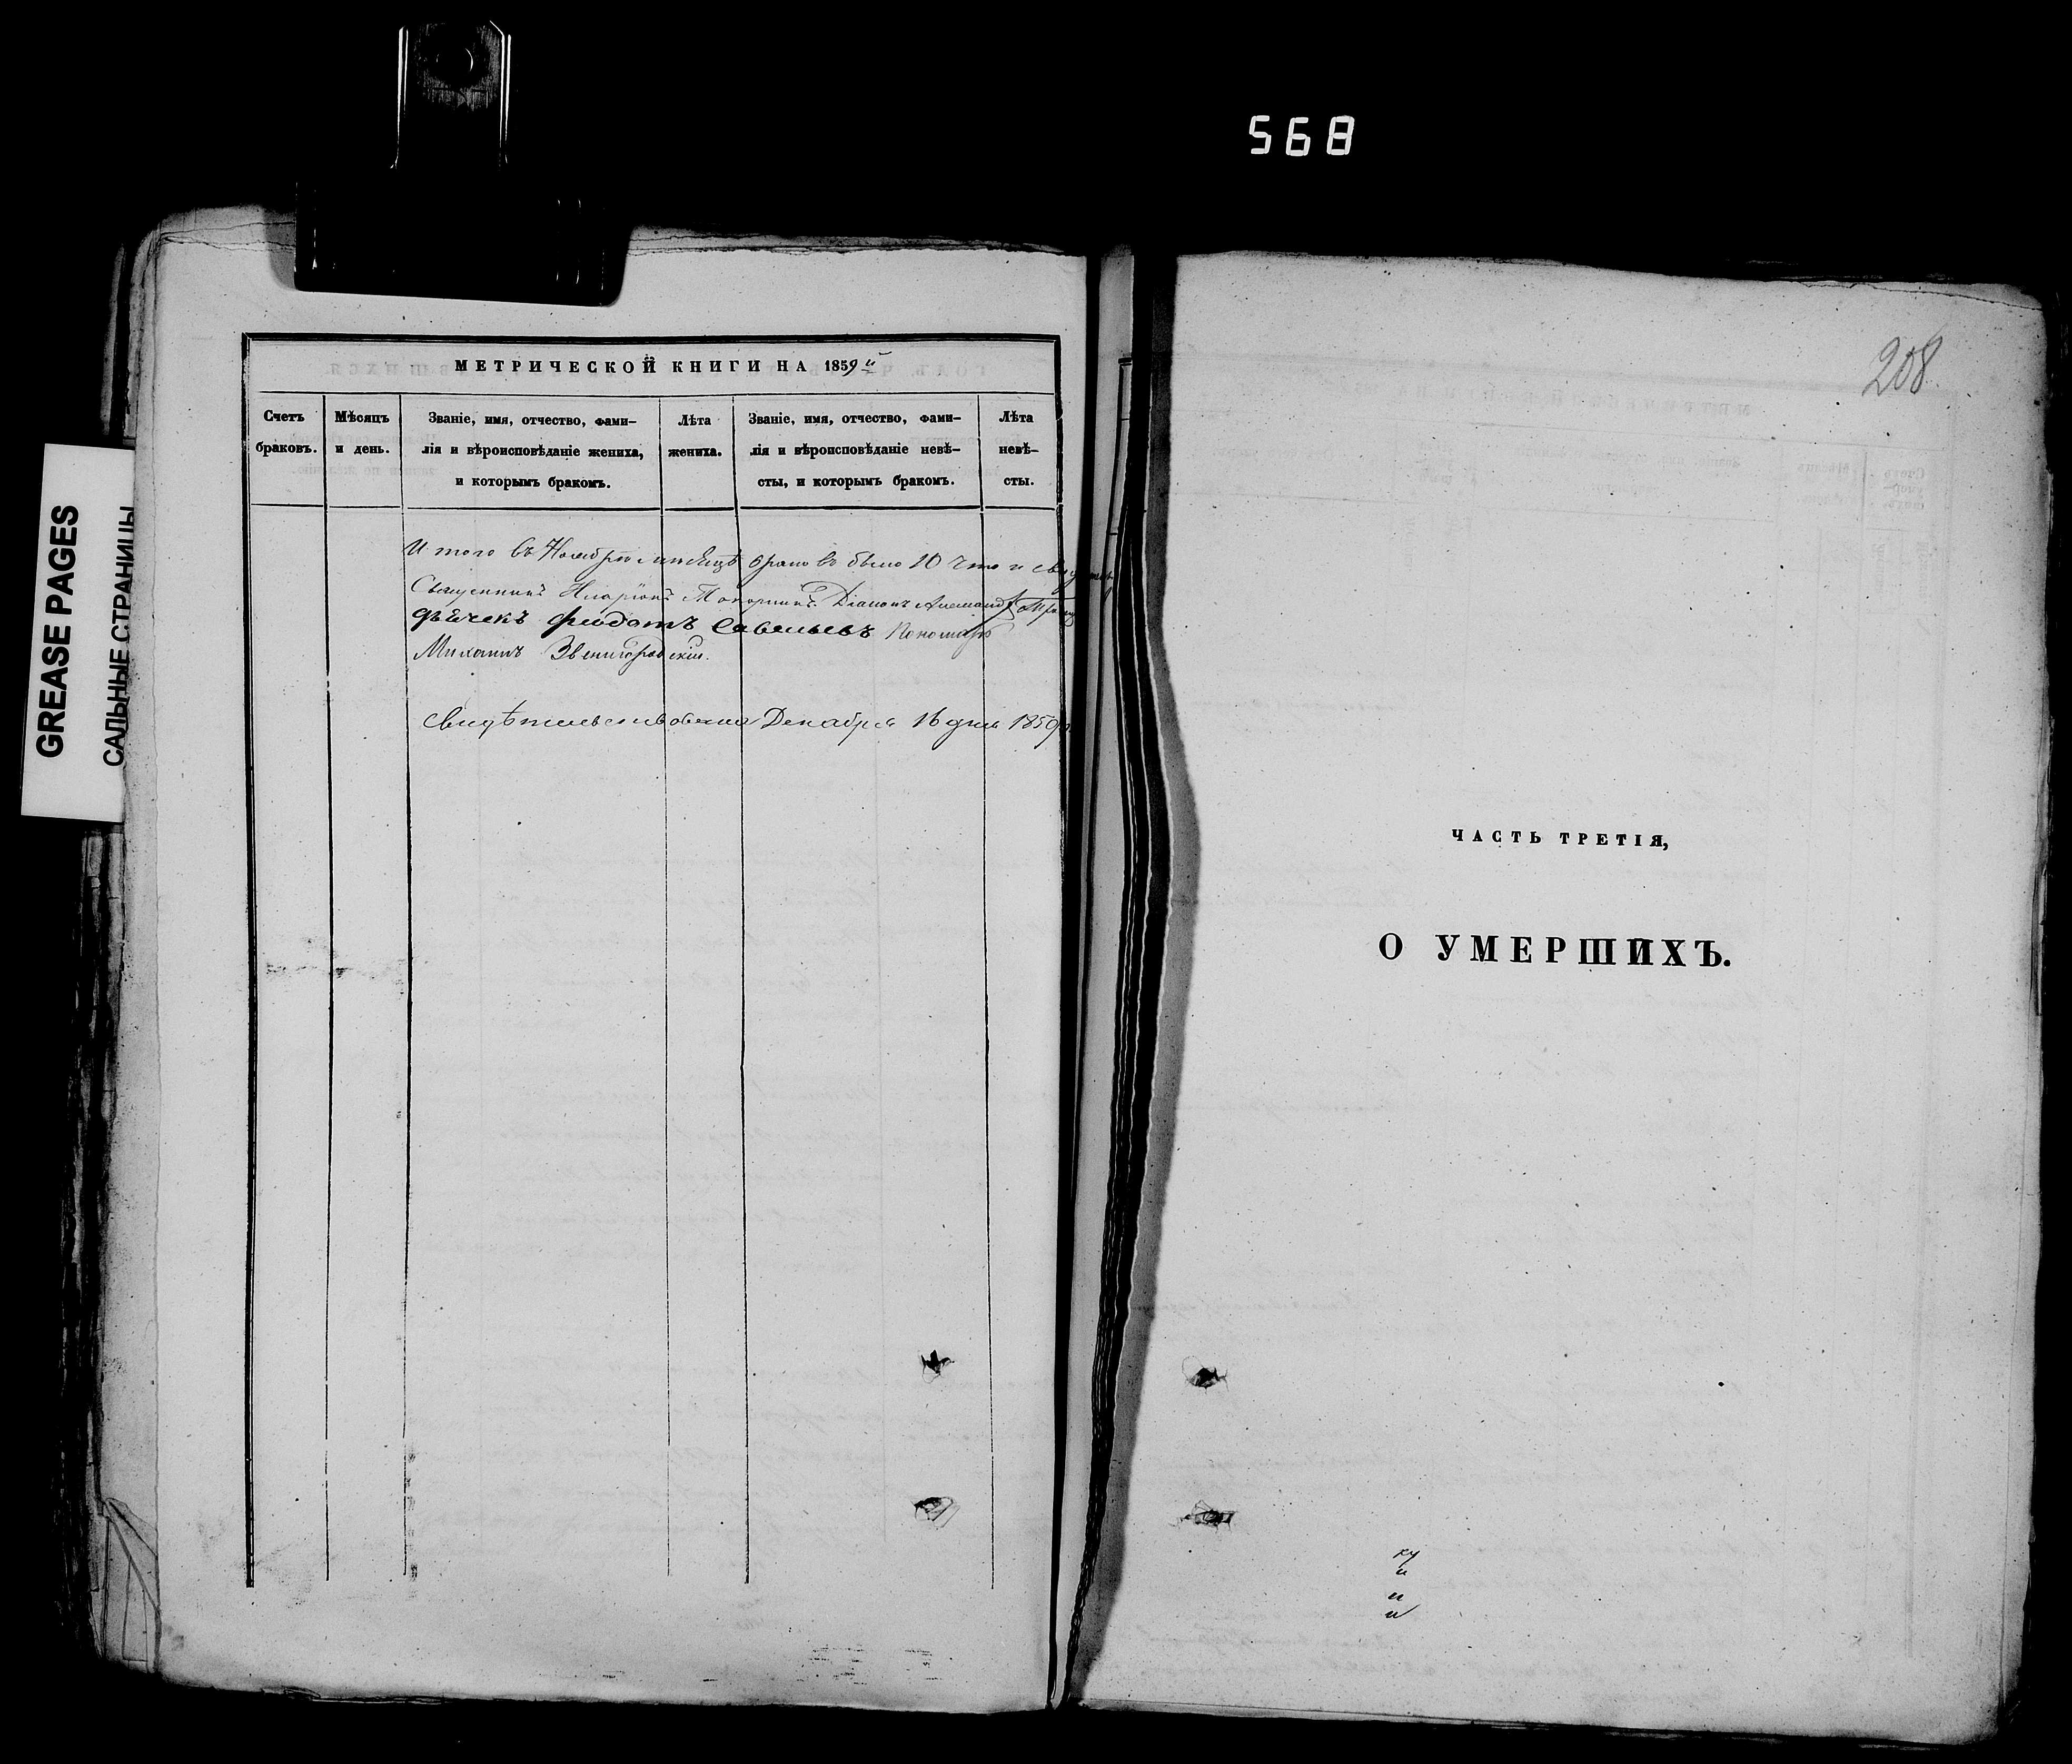 568
GREASE PAGES
САЛЬНЫЕ СТРАНИЦЫ
МЕТРИЧЕСКОЙ КНИГИ НА 1859й
Счетъ браковъ.
Мѣсяцъ и день.
Званіе, имя, отчество, фами-
лія и вѣроисповѣданіе жениха,
и которымъ бракомъ.
Лѣта жениха.
Званіе, имя, отчество, фами-
лія и вѣроисповѣданіе невѣ-
сты, и которымъ бракомъ.
Лѣта невѣ-
сты.
Итого въ Ноябрѣ мѣсяцѣ браковъ было 10 что и
Священникъ Иларіонъ Діаконъ
дьячекъ Феодотъ Савельевъ Пономарь
Михаилъ Звенигородскій.
Свидѣтельствовалъ Декабря 16 дня 1859
208
ЧАСТЬ ТРЕТІЯ,
О УМЕРШИХЪ.